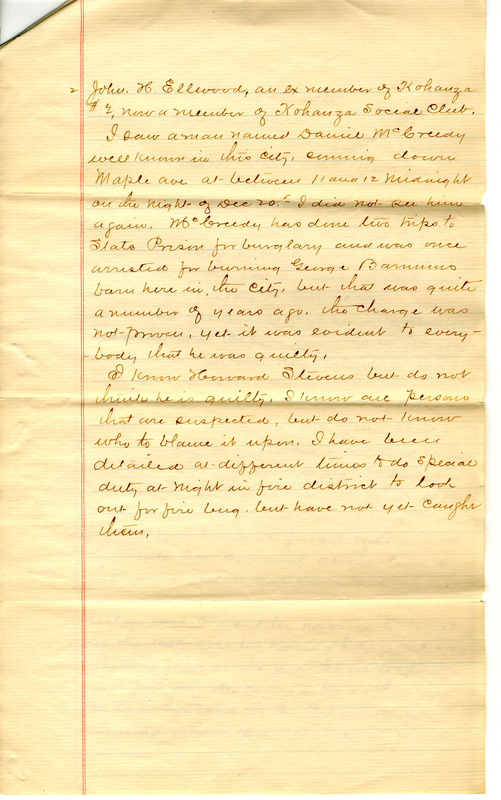 2 John. H. Ellwood, an ex member of Kohanza
#2, now a member of Kohanza Social Club.
I saw a man named Daniel McCreedy
well known in this city, coming down
Maple ave at between 11 and 12 Midnight
on the night of Dec 20." I did not see him
again. McCreedy has done two trips to
State Prison for burglary and was once
arrested for burning George Barnums
barn here in the City, but that was quite
a number of years ago. the charge was
not proven, yet it was evident to every-
-body that he was guilty.
I know Howard Stevens but do not
think he is guilty. I know all persons
that are suspected, but do not know
who to blame it upon. I have been
detailed at different times to do Special
duty at Night in fire district to look
out for fire bug. but have not yet caught
them.